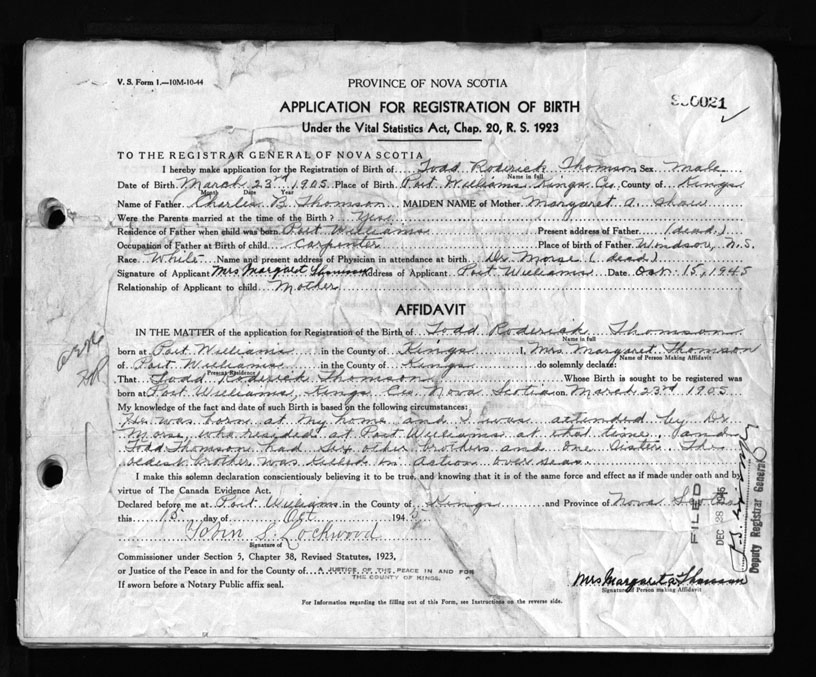 V. S. Form 1.—10M-10-44
PROVINCE OF NOVA SCOTIA
APPLICATION FOR REGISTRATION OF BIRTH
Under the Vital Statistics Act, Chap. 20, R. S. 1923
TO THE REGISTRAR GENERAL OF NOVA SCOTIA
I hereby make application for the Registration of Birth of Todd Roderick Thomson Sex Male
Name in full
Date of Birth March 23rd 1905 Place of Birth Port Williams Kings Co. County of Kings
Month Date Year
Name of Father Charles B. Thomson MAIDEN NAME of Mother Margaret A. Shaw
Were the Parents married at the time of the Birth? Yes
Residence of Father when child was born Port Williams Present address of Father (dead)
Occupation of Father at Birth of child Carpenter Place of birth of Father Windsor, N.S.
Race White Name and present address of Physician in attendance at birth Dr Morse (dead)
Signature of Applicant Mrs Margaret Thomson Address of Applicant Port Williams Date Oct 15, 1945
Relationship of Applicant to child Mother
AFFIDAVIT
IN THE MATTER of the application for Registration of the Birth of Todd Roderick Thomson
Name in full
born at Port Williams in the County of Kings I, Mrs. Margaret Thomson
Name of Person Making Affidavit
of Port Williams in the County of Kings do solemnly declare:
Present Residence
That Todd Roderick Thomson Whose Birth is sought to be registered was
born at Port Williams, Kings Co. Nova Scotia on March 23rd 1905
My knowledge of the fact and date of such Birth is based on the following circumstances:
He was born at my home and I was attended by Dr
Morse, who resided at Port Williams at that time. and
Todd Thomson had six other brothers and one sister The
oldest brother was killed in action overseas.
I make this solemn declaration conscientiously believing it to be true, and knowing that it is of the same force and effect as if made under oath and by
virtue of The Canada Evidence Act.
Declared before me at Port Williams in the County of Kings and Province of Nova Scotia
this 15 day of Oct 194
John S. Lockwood
Signature of
Commissioner under Section 5, Chapter 38, Revised Statutes, 1923,
or Justice of the Peace in and for the County of A JUSTICE OF THE PEACE IN AND FOR
THE COUNTY OF KINGS.
If sworn before a Notary Public affix seal.
Mrs Margaret A Thomson
Signature of Person making Affidavit
For Information regarding the filling out of this Form, see Instructions on the reverse side.
FILED
DEC 28
Deputy Registrar General